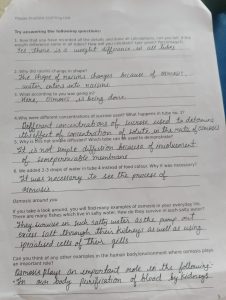 Try answering the following questions:
1. Now that you have recorded all the details and done all calculations, can you tell if the
weight difference same in all tubes? How did you calculate? (use space provided)
Yes there is a weight difference in all tubes
2. Why did raisins change in shape?
The shape of raisins changes because of osmosis.
water enters into raisins
3. What according to you is going on?
Here, Osmosis is being done
4. Why were different concentrations of sucrose used? What happens in tube no. 2?
Different concentrations of sucrose used to determine
the effect of concentration of solute on the rate of osmosis
5. Why is this not simple diffusion? What tube can be used to demonstrate?
It is not simple diffusion because of involvement
of semipermeable membrane
6. We added 2-3 drops of water in tube instead of food colour. Why it was necessary?
It was necessary to see the process of
osmosis
Osmosis around you
If you take a look around, you will find many examples of osmosis in your everyday life.
There are many fishes which live in salty water. How do they survive in such salty water?
They survive in such salty water as they pump out
excess salt through their kidneys as well as using
specialised cells of their gills
Can you think of any other examples in the human body/environment where osmosis plays
an important role?
Osmosis plays an important role in the following:
In our body purification of blood by kidneys